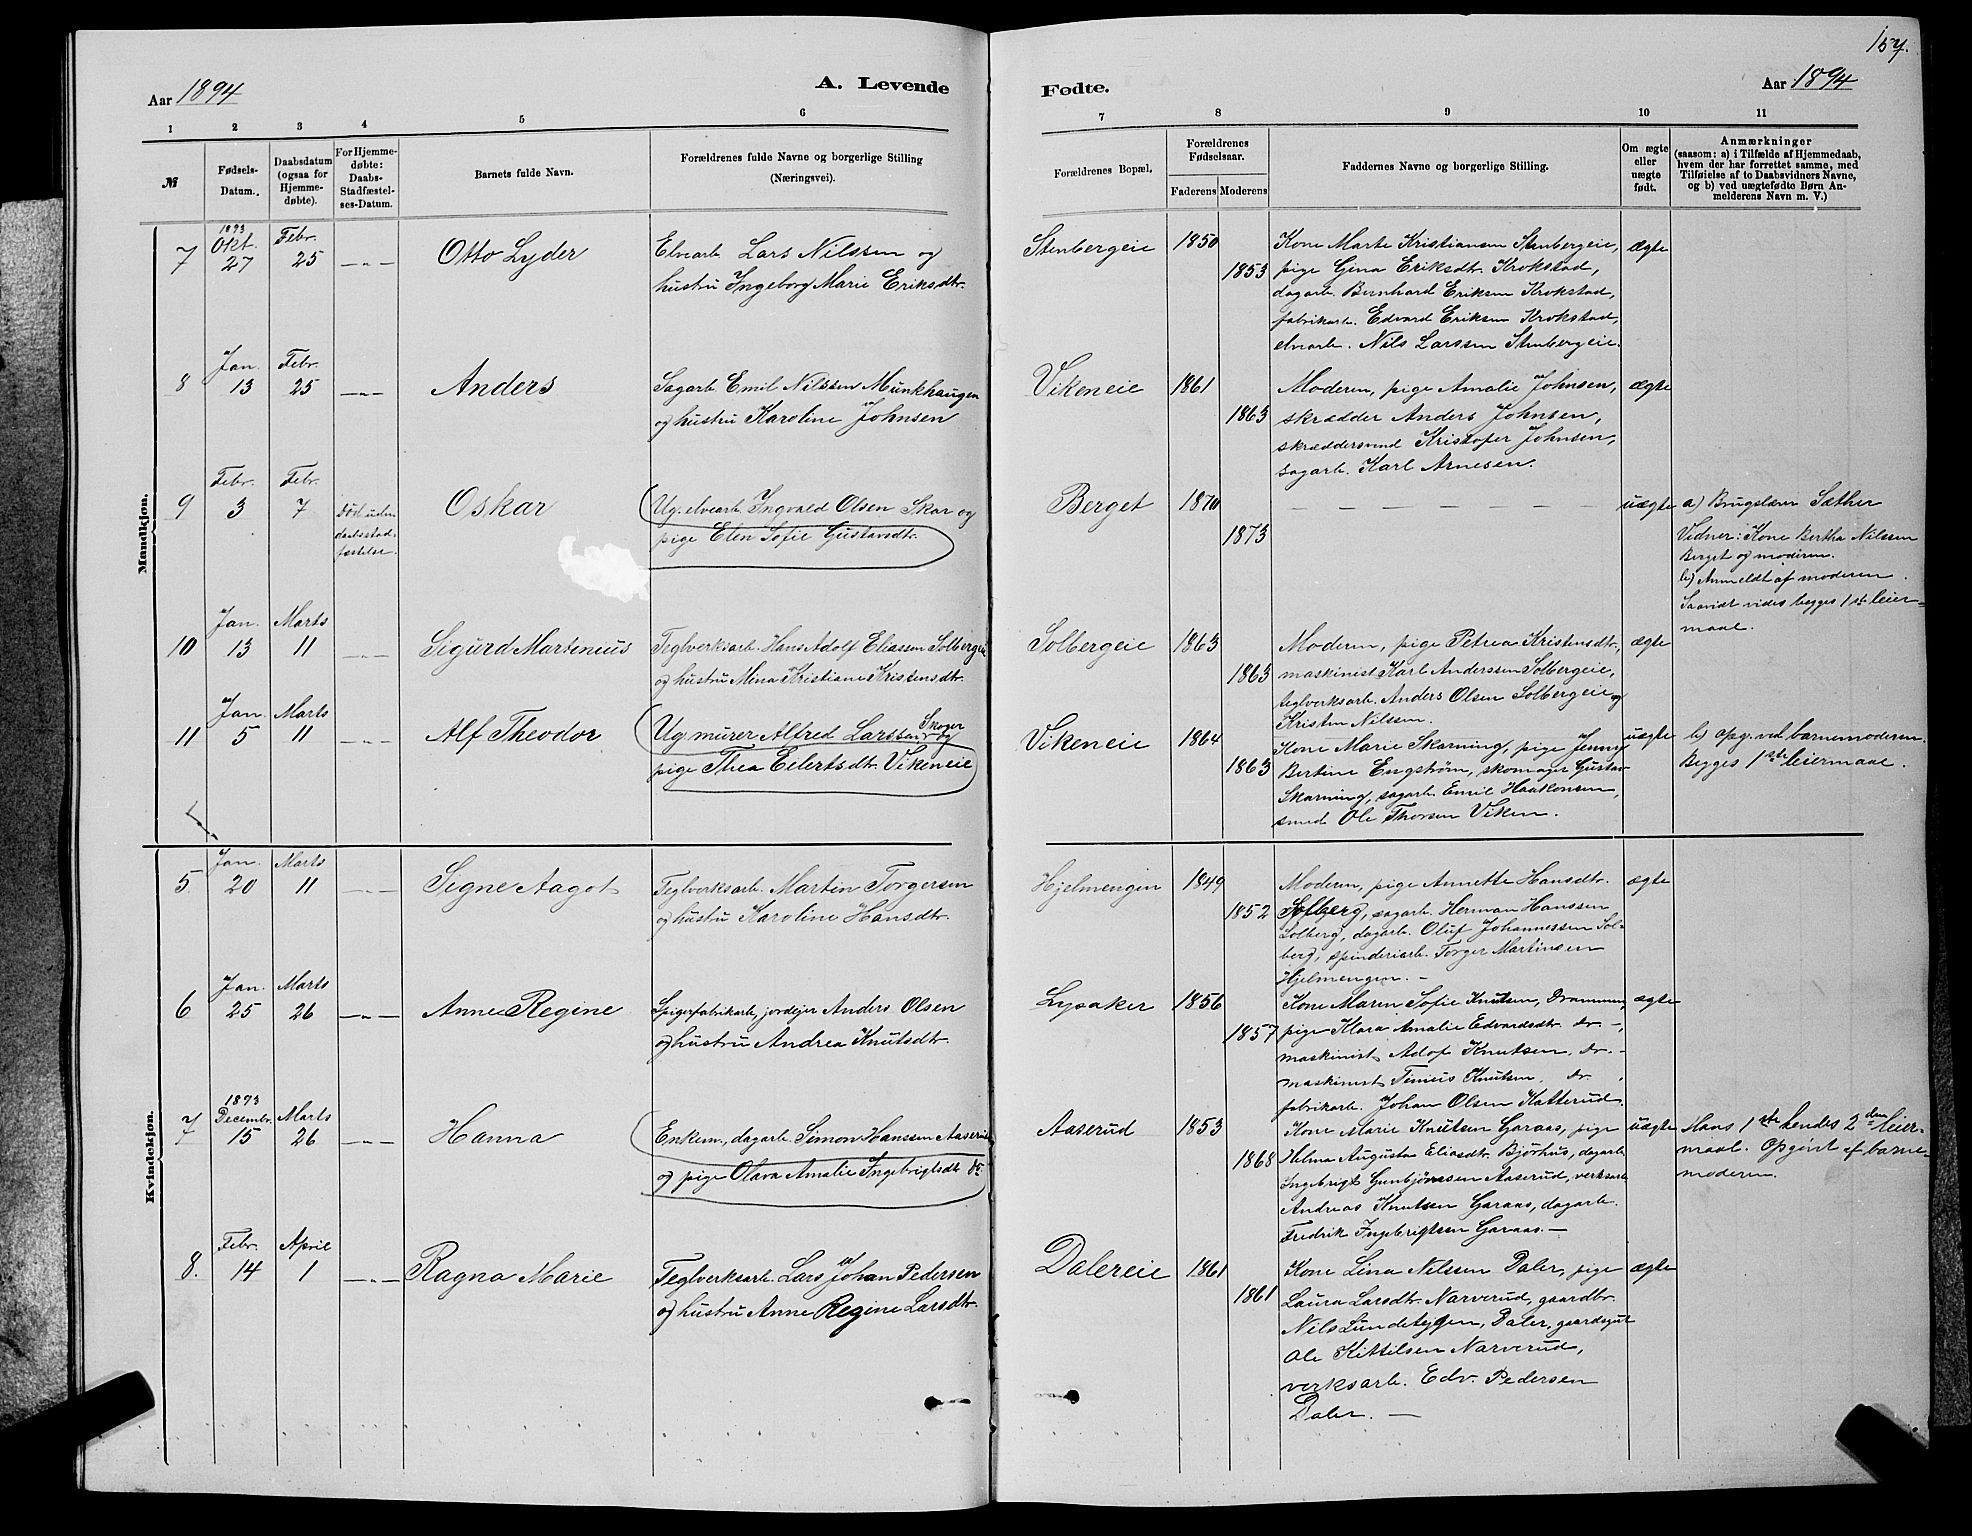 157.
Aar 1894
A. Levende
Fødte.
Aar 1894
1 2 3 4 5 6 7 8 9 10 11
№
Fødsels-
Datum.
Daabsdatum
(ogsaa for
Hjemme-
døbte).
For Hjemme-
døbte:
Daabs-
Stadfæstel-
ses-Datum.
Barnets fulde Navn.
Forældrenes fulde Navne og borgerlige Stilling
(Næringsvei).
Forældrenes Bopæl.
Forældrenes
Fødselsaar.
Faderens Moderens
Faddernes Navne og borgerlige Stilling.
Om ægte
eller
uægte
født.
Anmærkninger
(saasom: a) i Tilfælde af Hjemmedaab,
hvem der har forrettet samme, med
Tilføielse af to Daabsvidners Navne,
og b) ved uægtefødte Børn An-
melderens Navn m. V.)
Mandkjøn.
7
1893
Okt.
27
Febr.
25
—"—
Otto Lyder
Elvearb. Lars Nilssen og
hustru Ingeborg Marie Eriksdtr.
Stenbergeie
1850
1853
Kone Marte Kristiansen Stenbergeie,
pige Gina Eriksdtr. Krokstad,
dagarb. Bernhard Eriksen Krokstad,
fabrikarb. Edvard Eriksen Krokstad,
elvearb. Nils Larssen Stenbergeie.
ægte
8
Jan.
13
Febr.
25
—"—
Anders
Sagarb. Emil Nilssen Munkhaugen
og hustru Karoline Johnsen
Vikeneie
1861
1863
Moderen, pige Amalie Johnsen,
skrædder Anders Johnsen,
skræddersvend Kristofer Johnsen,
sagarb. Karl Arnesen.
ægte
9
Febr.
3
Febr.
7
Død uden
daabsstad-
fæstelse.
Oskar
Ug. elvearb. Ingvald Olsen Skar og
pige Elen Sofie Gustavsdtr.
Berget
1870
1873
— — — — — — — —
uægte
a) Brugslærer Sæther
Vidner: Kone Bertha Nilssen
Berget og moderen.
b) Anmeldt af moderen.
Saavidt vides begges 1ste leier-
maal.
10
Jan.
13
Marts
11
—"—
Sigurd Martinius
Teglverksarb. Hans Adolf Eliassen Solbergeie
og hustru Mina Kristiane Kristensdtr.
Solbergeie
1863
1863
Moderen, pige Petrea Kristensdtr.,
maskinist Karl Anderssen Solbergeie,
teglverksarb. Anders Olsen Solbergeie og
Kristen Nilssen.
ægte
11
Jan.
5
Marts
11
—"—
Alf Theodor
Ug. murer Alfred Larssen Skoger og
pige Thea Eilertsdtr. Vikeneie
Vikeneie
1864
1863
Kone Marie Skarning, pige Jenny
Bertine Engstrøm, skomager Gustav
Skarning, sagarb. Emil Haakonsen,
smed Ole Thorsen Viken.
uægte
b) opg. ved barnemoderen.
Begges 1ste leiermaal.
Kvindekjøn.
5
Jan.
20
Marts
11
—"—
Signe Aagot
Teglverksarb. Martin Torgersen
og hustru Karoline Hansdtr.
Hjelmengin
1849
1852
Moderen, pige Annette Hansdtr.
Solberg, sagarb. Herman Hanssen
Solberg, dagarb. Oluf Johannessen Sol-
berg, spinderiarb. Torger Martinsen
Hjelmengen. —
ægte
6
Jan.
25
Marts
26
—"—
Anne Regine
Spigerfabrikarb., jordejer Anders Olsen
og hustru Andrea Knutsdtr.
Lysaker
1856
1857
Kone Maren Sofie Knutsen, Drammen,
pige Klara Amalie Edvardsdtr. Dr. —,
maskinist Adof Knutsen, Dr. —
maskinist Tinius Knutsen, Dr. ,
fabrikarb. Johan Olsen Katterud.
ægte
7
1893
Decembr.
15
Marts
26
—"—
Hanna
Enkem., dagarb. Simon Hanssen Aaserud
og pige Olava Amalie Ingebrigtsdtr. Ds.
Aaserud
1853
1868
Kone Marie Knutsen Garaas, pige
Helma Augusta Eliasdtr. Bjørhus, dagarb.
Ingebrigt Gunbjørnsen Aaserud, verksarb.
Andreas Knutsen Garaas, dagarb.
Fredrik Ingebrigtsen Garaas. —
uægte
Hans 1ste hendes 2den leier-
maal. Opgivt af barne-
moderen.
8.
Febr.
14
April
1
—"—
Ragna Marie
Teglverksarb. Lars Johan Pedersen
og hustru Anne Regine Larsdtr.
Dalereie
1861
1861
Kone Lina Nilssen Daler, pige
Laura Larsdtr. Narverud, gaardbr.
Nils Lundetygen, Daler, gaardsgut
Ole Kittilsen Narverud,
verksarb. Edv. Pedersen
Daler. —
ægte